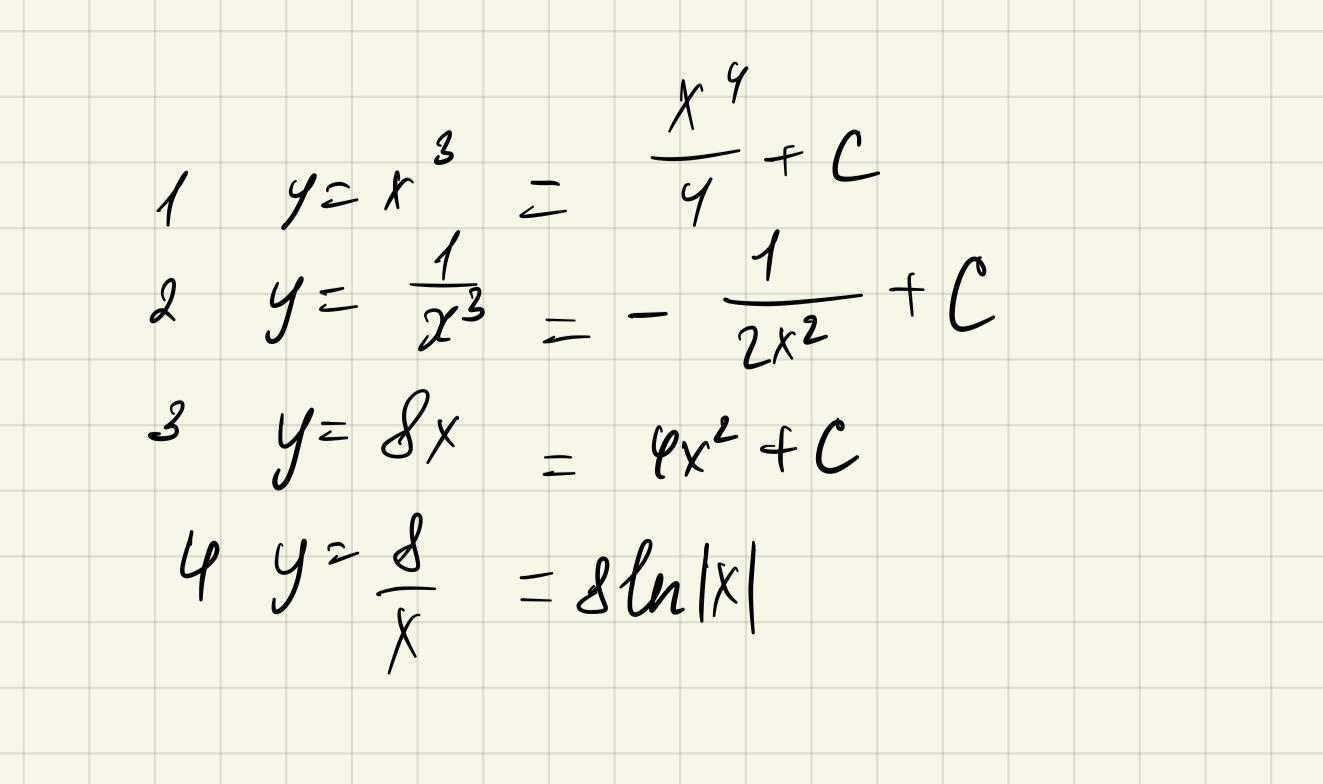 1 y = x³ = x⁴/4 + C
2 y = 1/x³ = - 1/2x² + C
3 y = 8x = 4x² + C
4 y = 8/x = 8ln|x|